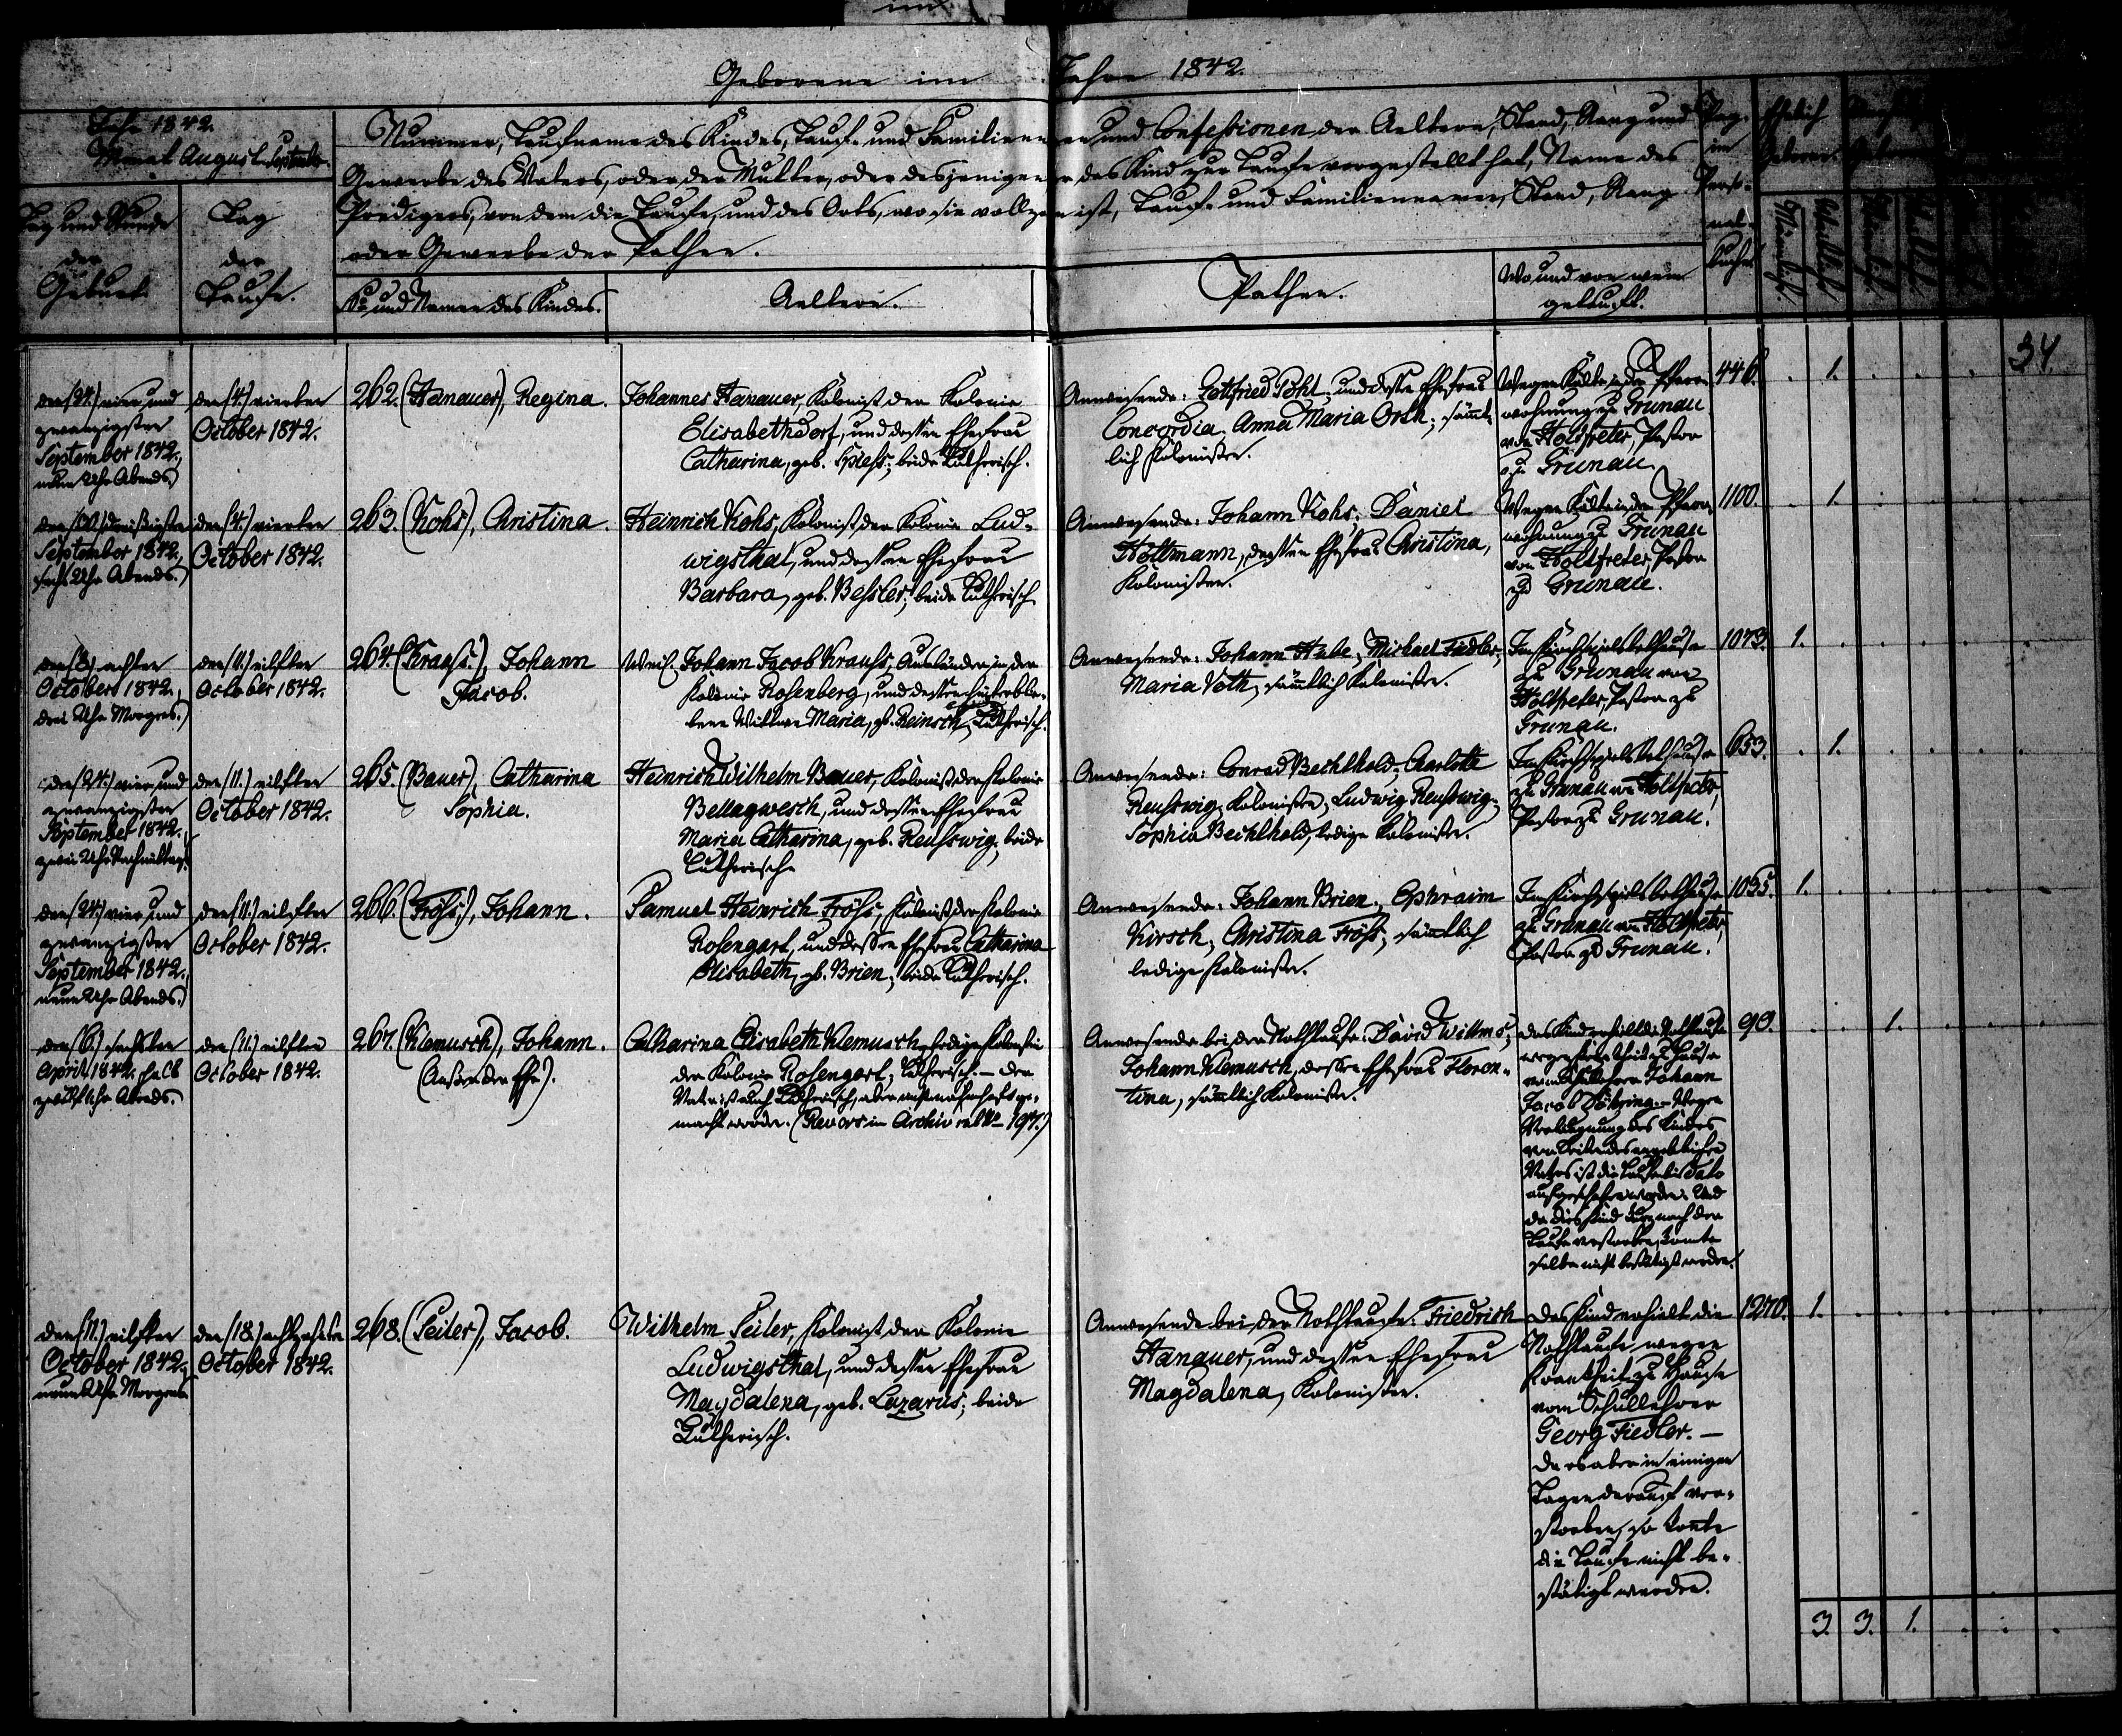 Geborene im Jahre 1842.
Jahr 1842.
Monat August. September.
Nummer, Taufname des Kindes, Taufe und Familiennamen und Confessionen der Aeltern, Stand, Rang und
Gewerbe des Vaters, oder der Mutter, oder desjenigen der das Kind zur Taufe vorgestellt hat, Name des
Predigers, von dem die Taufe, und des Orts, wo sie vollzogen ist, Taufe und Familiennamen, Stand, Rang
oder Gewerbe der Pathen.
Pag.
im
Perso-
nal-
buche
Ehelich
Geboren.
Tag und Stunde
der
Geburt.
Tag
der
Taufe.
No und Namen des Kindes.
Aeltern.
Pathen.
Wo und von wem
getauft.
Männlich.
Weiblich.
34.
den (24.) vier und
zwanzigsten
September 1842.,
neun Uhr Abends.)
den (4.) vierten
October 1842.
262. (Hanauer), Regina.
Johannes Hanauer, Kolonist der Kolonie
Elisabethdorf, und dessen Ehefrau
Catharina, geb. Spiess; beide Lutherisch.
Anwesende: Gottfried Pohl, und dessen Ehefrau
Concordia. Anna Maria Orth; sämt-
lich Kolonisten.
Wegen Kälte in der Pfarr-
wohnung zu Grunau
von Holtfreter, Pastor
zu Grunau.
446. . 1. . . .
den (30.) dreißigsten
September 1842.,
sechs Uhr Abends.)
den (4.) vierten
October 1842.
263. (Kohs), Christina.
Heinrich Kohs, Kolonist der Kolonie Lud-
wigsthal, und dessen Ehefrau
Barbara, geb. Bessler; beide Lutherisch
Anwesende: Johann Kohs; Daniel
Hottmann, dessen Ehefrau Christina,
Kolonisten.
Wegen Kälte in der Pfarr-
wohnung zu Grunau
von Holtfreter, Pastor
zu Grunau.
1100. . 1. . . .
den (8.) achten
October 1842.,
drei Uhr Morgens.)
den (11.) eilften
October 1842.
264. (Krauss.), Johann
Jacob.
Weil. Johann Jacob Krauss, Ausländer in der
Kolonie Rosenberg, und dessen hinterblie-
bene Wittwe Maria, geb. Reinsch, Lutherisch.
Anwesende: Johann Hube; Michael Fiedler;
Maria Voth; sämtlich Kolonisten.
Im Kirchspielsbethause
zu Grunau von
Holtfreter, Pastor zu
Grunau.
1073. 1. . . . .
den (24.) vier und
zwanzigsten
September 1842.,
zwei Uhr Nachmittags)
den (11.) eilften
October 1842.
265. (Bauer), Catharina
Sophia.
Heinrich Wilhelm Bauer, Kolonist der Kolonie
Bellagwesch, und dessen Ehefrau
Maria Catharina, geb. Reusswig; beide
Lutherisch
Anwesende: Conrad Bechthold, Charlotte
Reusswig, Kolonisten; Ludwig Reusswig,
Sophia Bechthold, ledige Kolonisten.
Im Kirchspielsbethause
zu Grunau von Holtfreter,
Pastor zu Grunau.
653. . 1. . . .
den (24.) vier und
zwanzigsten
September 1842.,
neun Uhr Abends.)
den (11.) eilften
October 1842.
266. (Fröss.), Johann.
Samuel Heinrich Fröss, Kolonist der Kolonie
Rosengart, und dessen Ehefrau Catharina
Elisabeth, geb. Brien; beide Lutherisch.
Anwesende: Johann Brien, Ephraim
Kirsch, Christina Fröss; sämtlich
ledige Kolonisten.
Im Kirchspielsbethause
zu Grunau von Holtfreter,
Pastor zu Grunau.
1035. 1. . . . .
den (6.) sechsten
April 1842. halb
zwölf Uhr Abends.
den (11.) eilften
October 1842.
267. (Klemusch), Johann.
(Außer der Ehe).
Catharina Elisabeth Klemusch, ledige Kolonistin
der Kolonie Rosengart; Lutherisch. — Der
Vater ist auch Lutherisch, aber nicht namhaft ge-
macht worden. (Revers im Archiv sub No 197.)
Anwesende bei der Nothtaufe: David Willms;
Johann Klemusch, dessen Ehefrau Floren-
tina, sämtlich Kolonisten.
Das Kind erhielt die Nothtaufe
wegen Krankheit zu Hause
vom Schullehrer Johann
Jacob Döhring. — Wegen
Verläugnung des Kindes
von Seiten des angeblichen
Vaters ist die Taufe bis dato
aufgeschoben worden. Und
da dies Kind kurz nach der
Taufe verstorben, konnte
selbe nicht bestätigt werden.
90. . . 1. . . .
den (11.) eilften
October 1842.,
neun Uhr Morgens.
den (18.) achtzehnten
October 1842.
268. (Seiler), Jacob.
Wilhelm Seiler, Kolonist der Kolonie
Ludwigsthal, und dessen Ehefrau
Magdalena, geb. Lazarus; beide
Lutherisch.
Anwesende bei der Nothtaufe: Friedrich
Hanauer, und dessen Ehefrau
Magdalena, Kolonisten.
Das Kind erhielt die
Nothtaufe wegen
Krankheit zu Hause
vom Schullehrer
Georg Fiedler. —
Da es aber in einigen
Tagen darauf ver-
storben, so konte
die Taufe nicht be-
stätigt werden.
1270. 1. . . . .
3. 3. 1. . . .